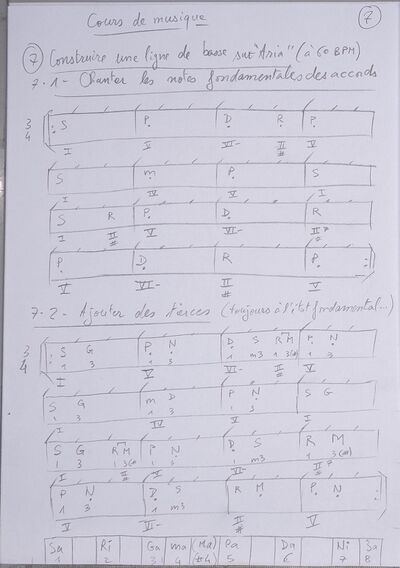 Cours de musique
7
7 Construire une ligne de basse sur "Aria" (à 60 BPM)
7.1- Chanter les notes fondamentales des accords
3 S P D R P
4
I V VI- II # V
S m P S
I IV V I
S R P D R
I II # V VI- II 7 #
P D R P
V VI- II # V
7.2- Ajouter des tierces (toujours à l'état fondamental...)
3 S G P N D S R M P N
4 1 3 1 3 1 m3 1 3(#) 1 3
I V VI- II # V
S G m D P N S G
1 3 1 3 1 3
I IV V I
S G R M P N D S R M
1 3 1 3(#) 1 3 1 m3 1 3(#)
I II # V VI- II 7
P N D S R M P N
1 3 1 m3
V VI- II # V
Sa Ri Ga ma Pa Da Ni Sa
1 2 3 4 (#4) 5 6 7 8